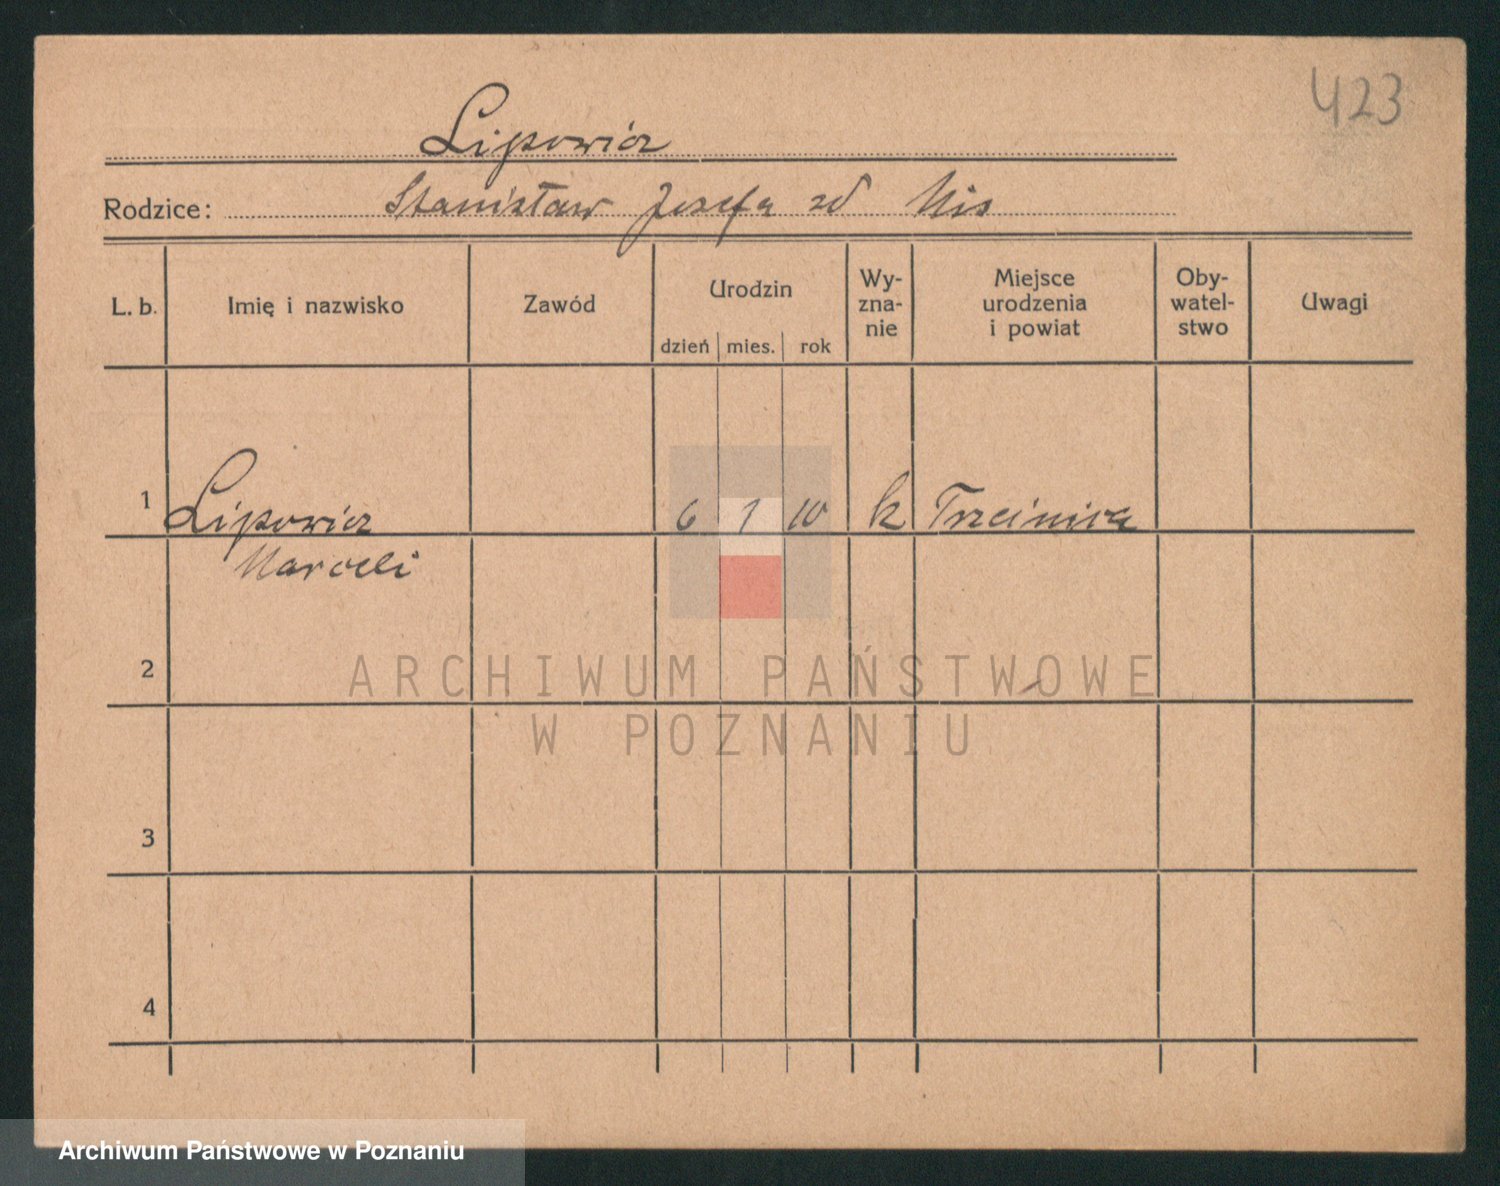 423
Lipowicz
Rodzice: Stanisław Józefa zd Nis
L. b. Imię i nazwisko Zawód Urodzin dzień mies. rok Wy-zna-nie Miejsce urodzenia i powiat Oby-watel-stwo Uwagi
1 Lipowicz 6 1 10 k Trzcinica
Marceli
2
ARCHIWUM PAŃSTWOWE
W POZNANIU
3
4
Archiwum Państwowe w Poznaniu